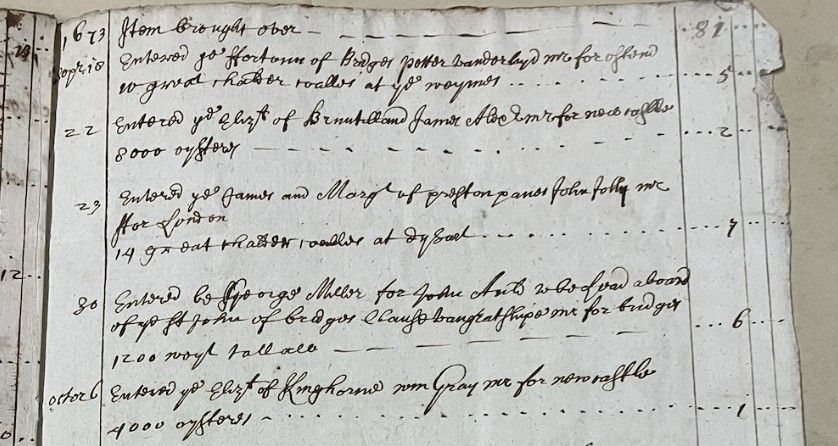 1673 Item brought over 81
Sepr 18 Entered ye ffortoun of Bridges petter vanderluyd mr for ostend
10 great chalder coalles at ye weymes 5
22 Entered ye Elizt of Bruntilland James Alexr mr for new castle
8000 oysteres 2
23 Entered ye James and Margt of preston panes John Jolly mr
ffor London
14 great chalder coalles at dysart 7
30 Entered be George Miller for John Auld to be load aboard
of ye St John of bridges mr for bridges
1200 weyt tallo 6
octor 6 Entered ye Elizt of Kinghorne wm Gray mr for new castle
4000 oysteres 1
12
0